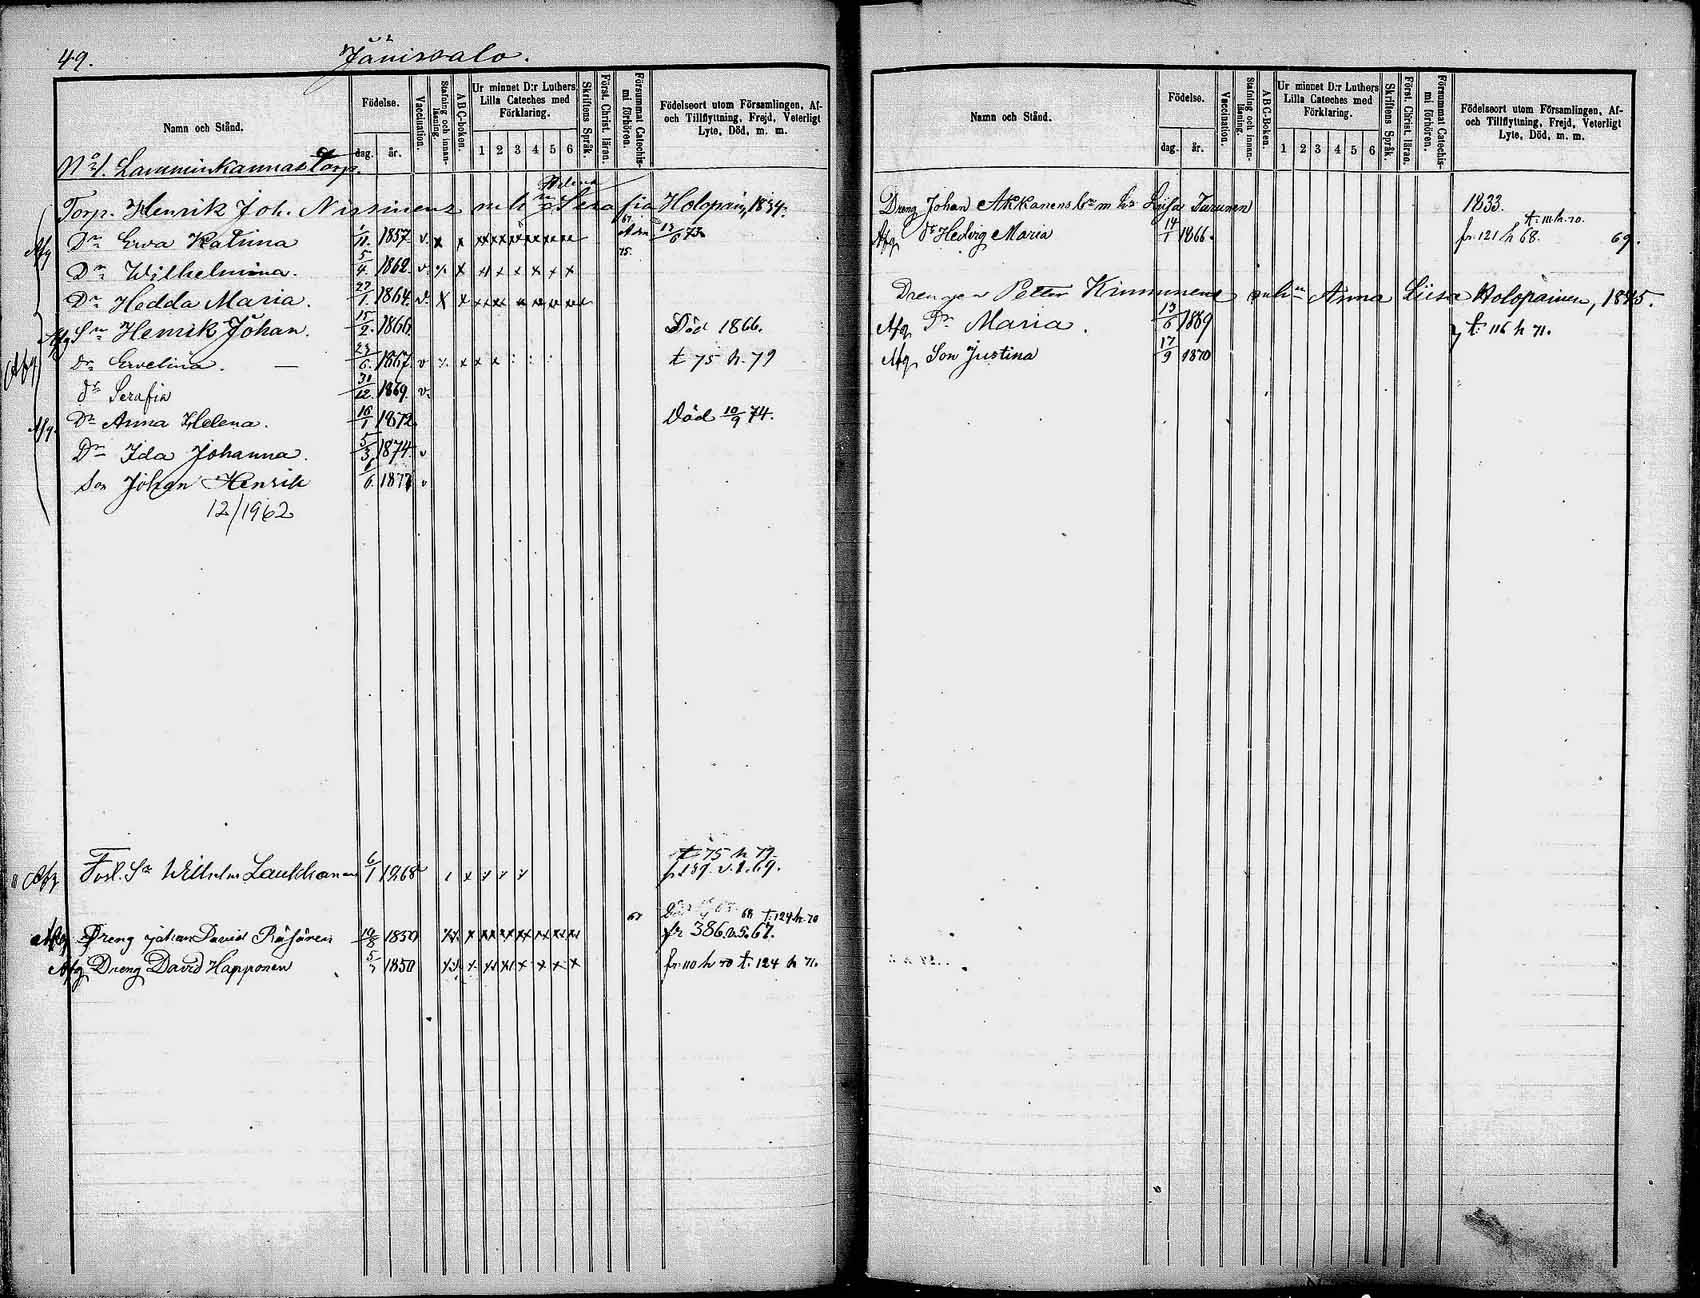 49. Jänissalo.
Namn och Stånd.
Födelse.
dag. år.
Vaccination.
Stafning och innanläsning.
A B C-boken.
Ur minnet D:r Luthers Lilla Cateches med Förklaring.
1 2 3 4 5 6
Skriftens Språk.
Först. Christ. läran.
Försummat Catechismi förhören.
Födelseort utom Församlingen, Af- och Tillflyttning, Frejd, Veterligt Lyte, Död, m. m.
Torp.
Helena
Torp. Henrik Joh. Nissinens Serafia Holopain. 1834.
Dr Eva Katrina 1/11. 1857. v. x x 67. 75. 12/6 73.
Afg
Dr Wilhelmina. 5/4. 1862. v. x x x x x x x
Dr Hedda Maria. 27/1. 1864. v. x x
Afg Sn Henrik Johan. 15/2. 1866. Död 1866.
Afg
dr Evelina. — 23/6. 1867. v x x x t 75 h 79
dr Serafia 31/12. 1869. v.
Afg. Dr Anna Helena. 16/1 1872 Död 10/9 74.
Dr Ida Johanna. 5/3 1874. v
Son Johan Henrik 6/6. 1877 v
12/1962
t 75 h 79.
Afg Wilhelm 6/1 1868 x x x x
69.
68 t. 124 h. 70
67
Dreng Johan David Räsänen 19/8 1850 fr 386. 67.
Afg Dreng David Happonen 5/7 1850 fr. 110 h 70 t. 124 h 71.
Namn och Stånd.
Födelse.
dag. år.
Vaccination.
Stafning och innanläsning.
A B C-Boken.
Ur minnet D:r Luthers Lilla Cateches med Förklaring.
1 2 3 4 5 6
Skriftens Språk.
Först. Christ. läran.
Försummat Catechismi förhören.
Födelseort utom Församlingen, Af- och Tillflyttning, Frejd, Veterligt Lyte, Död, m. m.
Dreng Johan Akkanens m. h. Lisa Tarunen 1833.
t. 111 h. 70.
Afg dr Hedvig Maria 14/1 1866. fr. 121 h 68. 69.
Drengen Petter Kinnunens Anna Liisa Holopainen, 1845.
Afg Dr Maria. 13/6 1869 t. 116 h 71.
Afg Son Justina 17/9 1870